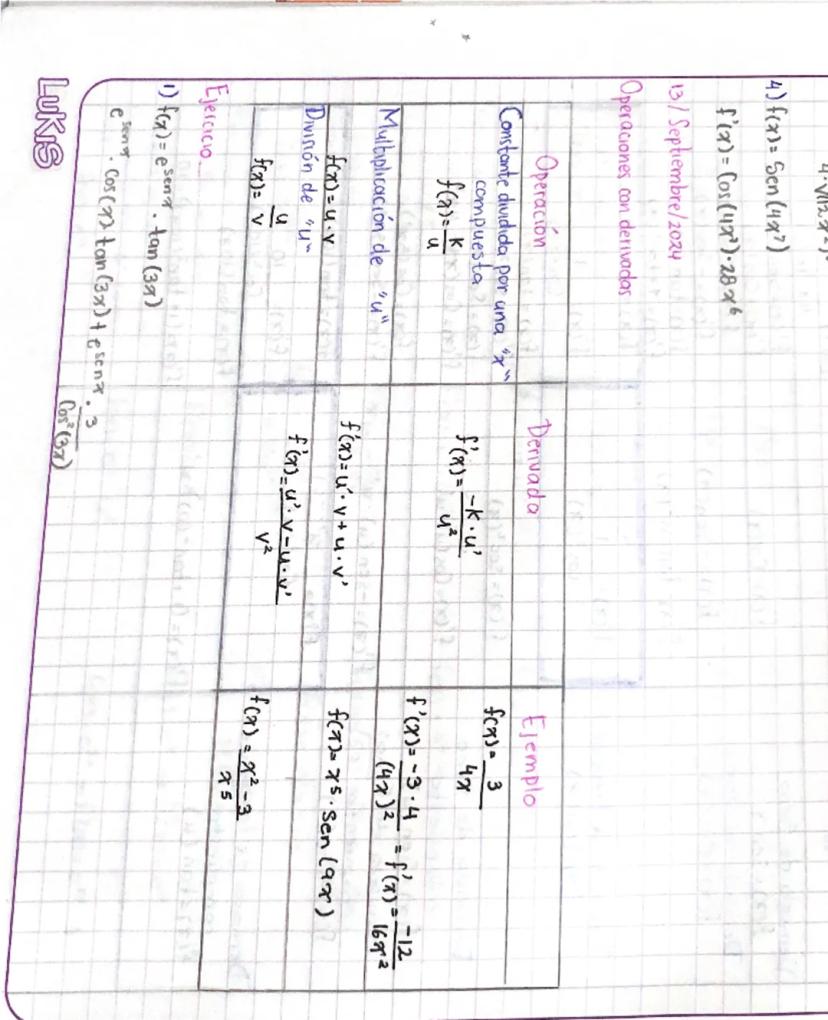 4) f(x) = Sen (4x⁷)
f'(x) = Cos (4x⁷) · 28x⁶
13/Septiembre/2024
Operaciones con derivadas
Operación Derivada Ejemplo
Constante dividida por una "x" compuesta
f(x) = k/u
f'(x) = -k · u'/u²
f(x) = 3/4x
f'(x) = -3 · 4/(4x)² = f'(x) = -12/16x²
Multiplicación de "u"
f(x) = u · v
f'(x) = u' · v + u · v'
f(x) = x⁵ · sen (9x)
División de "u"
f(x) = u/v
f'(x) = u' · v - u · v'/v²
f(x) = x² - 3/x⁵
Ejercicio
1) f(x) = e^senx · tan (3x)
e^senx · cos(x) tan(3x) + e^senx · 3/Cos²(3x)
LUKIS